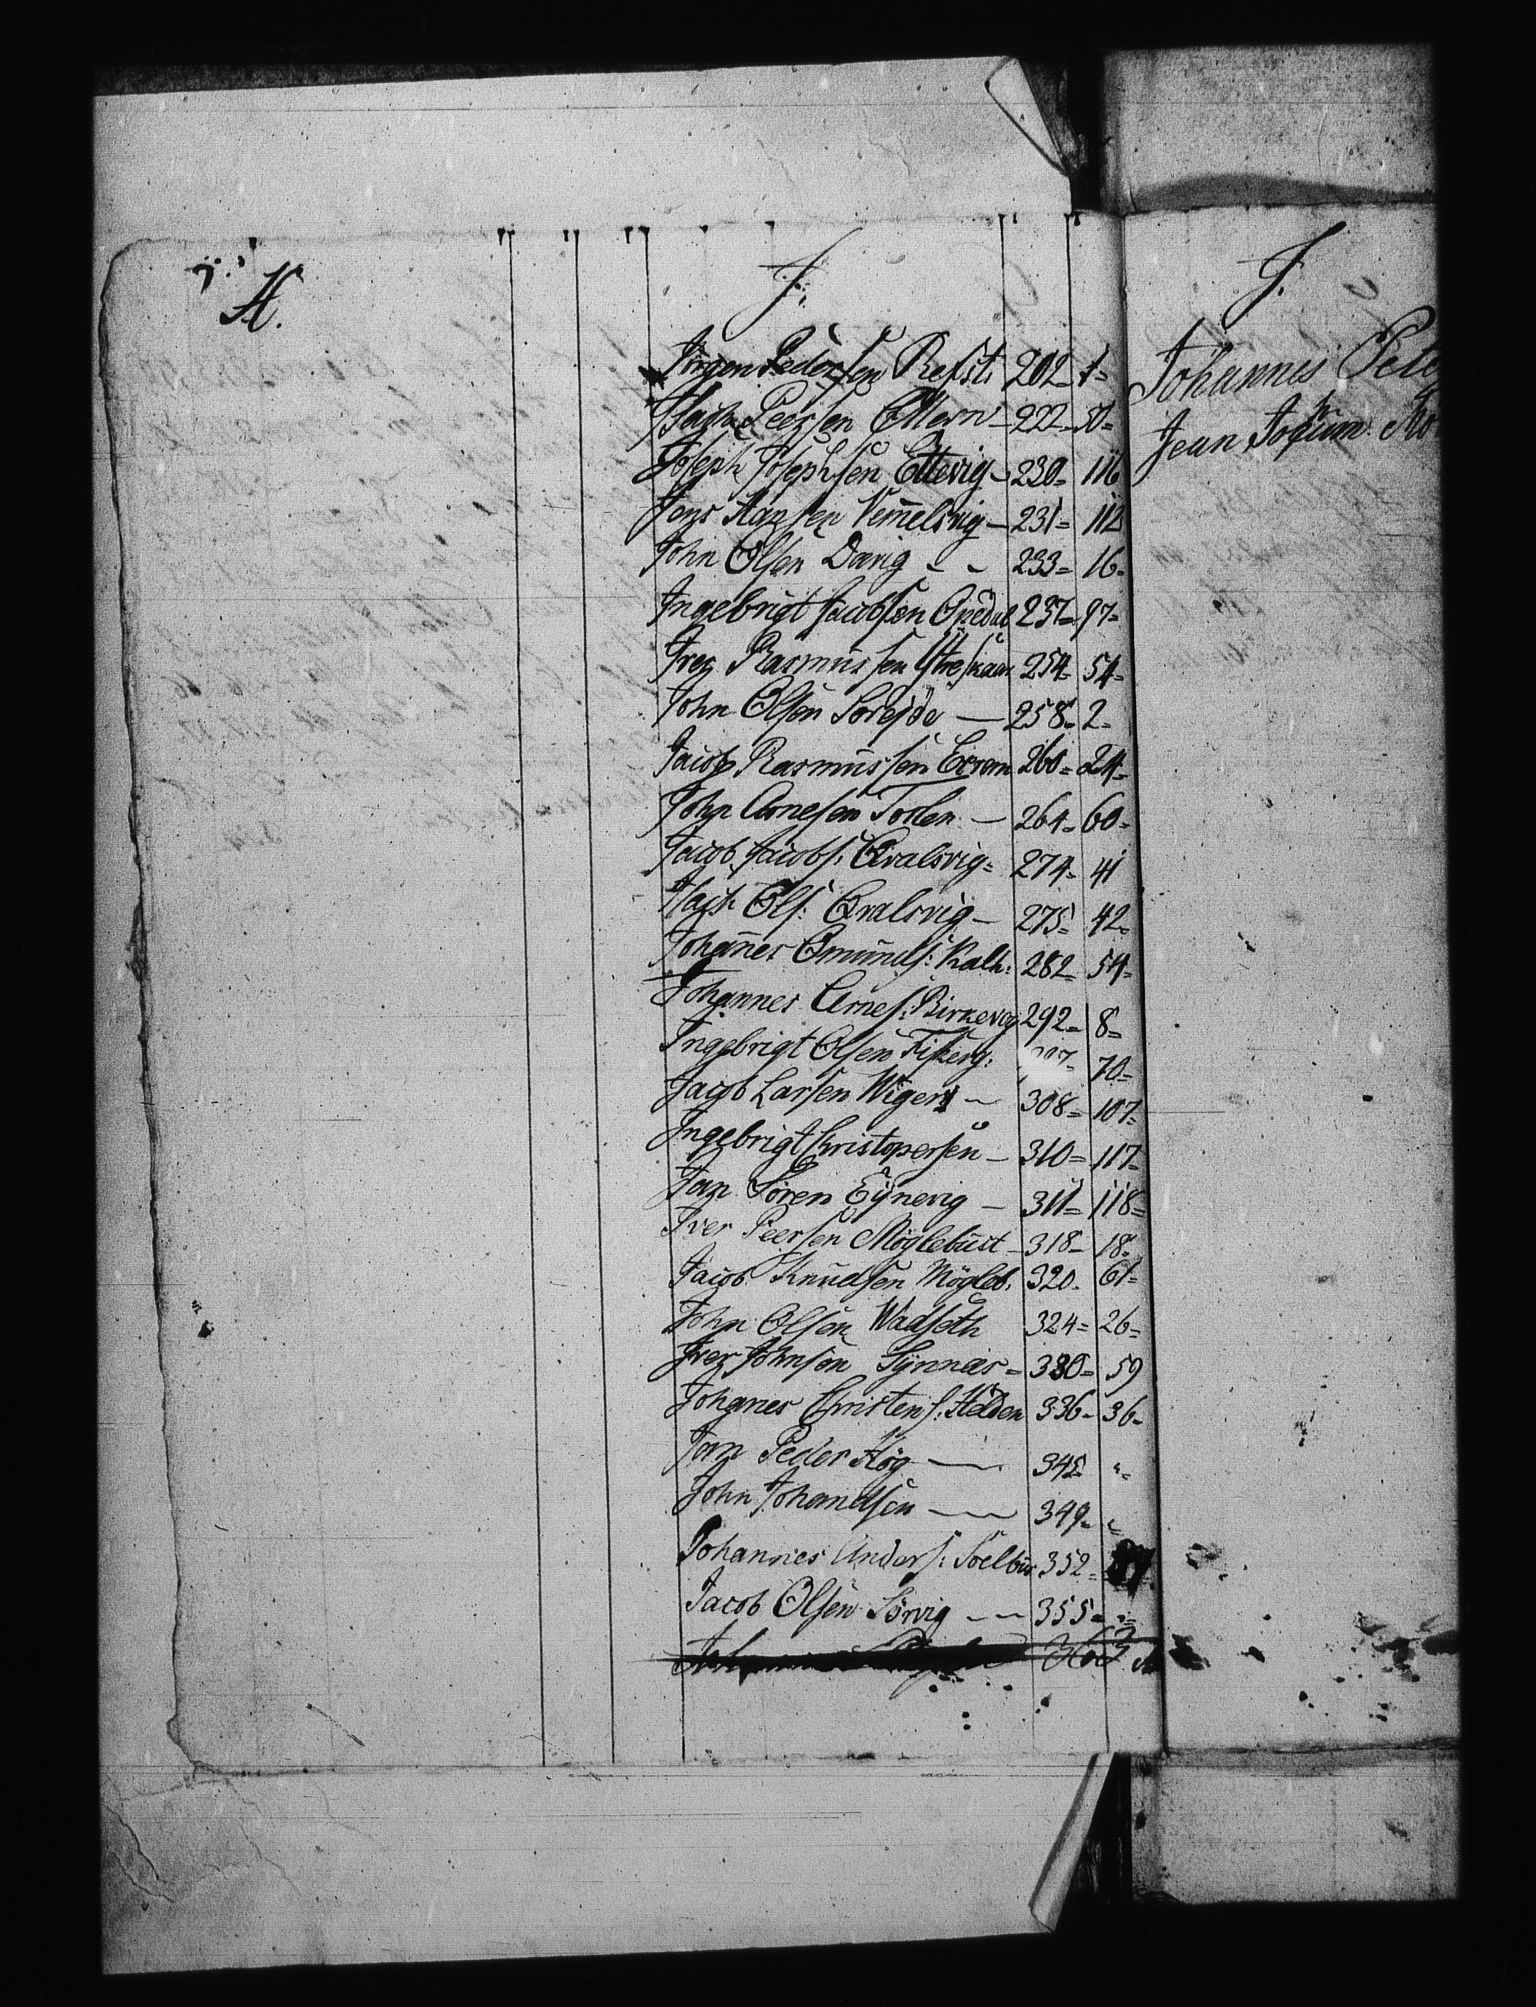 H.
J.
Jörgen Pedersen Refst: 202 = 1 =
Isach Peersen Ellern - 222 - 50 =
Joseph Josephsen Ettevig - 230 = 116
Jens Hansen Vemelsvig - 231 = 112
John Olsen Davig - - 233 = 16 =
Ingebrigt Jacobsen Opedal 237 = 97 =
Iver Rasmussen Ytreskaar 254 = 54 =
John Olsen Soreide — 258 = 2 =
Jacob Rasmussen Ervem 260 = 24 =
John Arnesen Toslen — 264 = 60 =
Jacob Jacobs: Qvalsvig = 274 = 41
Isach Ols: Qvalsvig — 275 = 42 =
Johanes Omunds: Kalh: 282 = 54 =
Johannes Arnes: Birkevog 292 = 8 =
Ingebrigt Olsen Fiskerg: 70 =
Jacob Larsen Wiger — 308 = 107 =
Ingebrigt Christopersen — 310 = 117 =
Jan Sören Eynevig — 311 = 118 =
Iver Peersen Möglebust - 318 = 18 =
Jacob Knudsen Mögleb. 320 = 61 =
John Olsen Wadseth 324 = 26 =
Iver Johnsen Synnæs = 330 = 59
Johanes Christens: Helden 336 = 36 =
Jan Peder Höy — 345 "
John Johandsen — 349 = "
Johannes Anders: Soelbu 352 =
Jacob Olsen Sörvig — — 355 = " =
363
J.
Johannes Pete
Jean Jochum